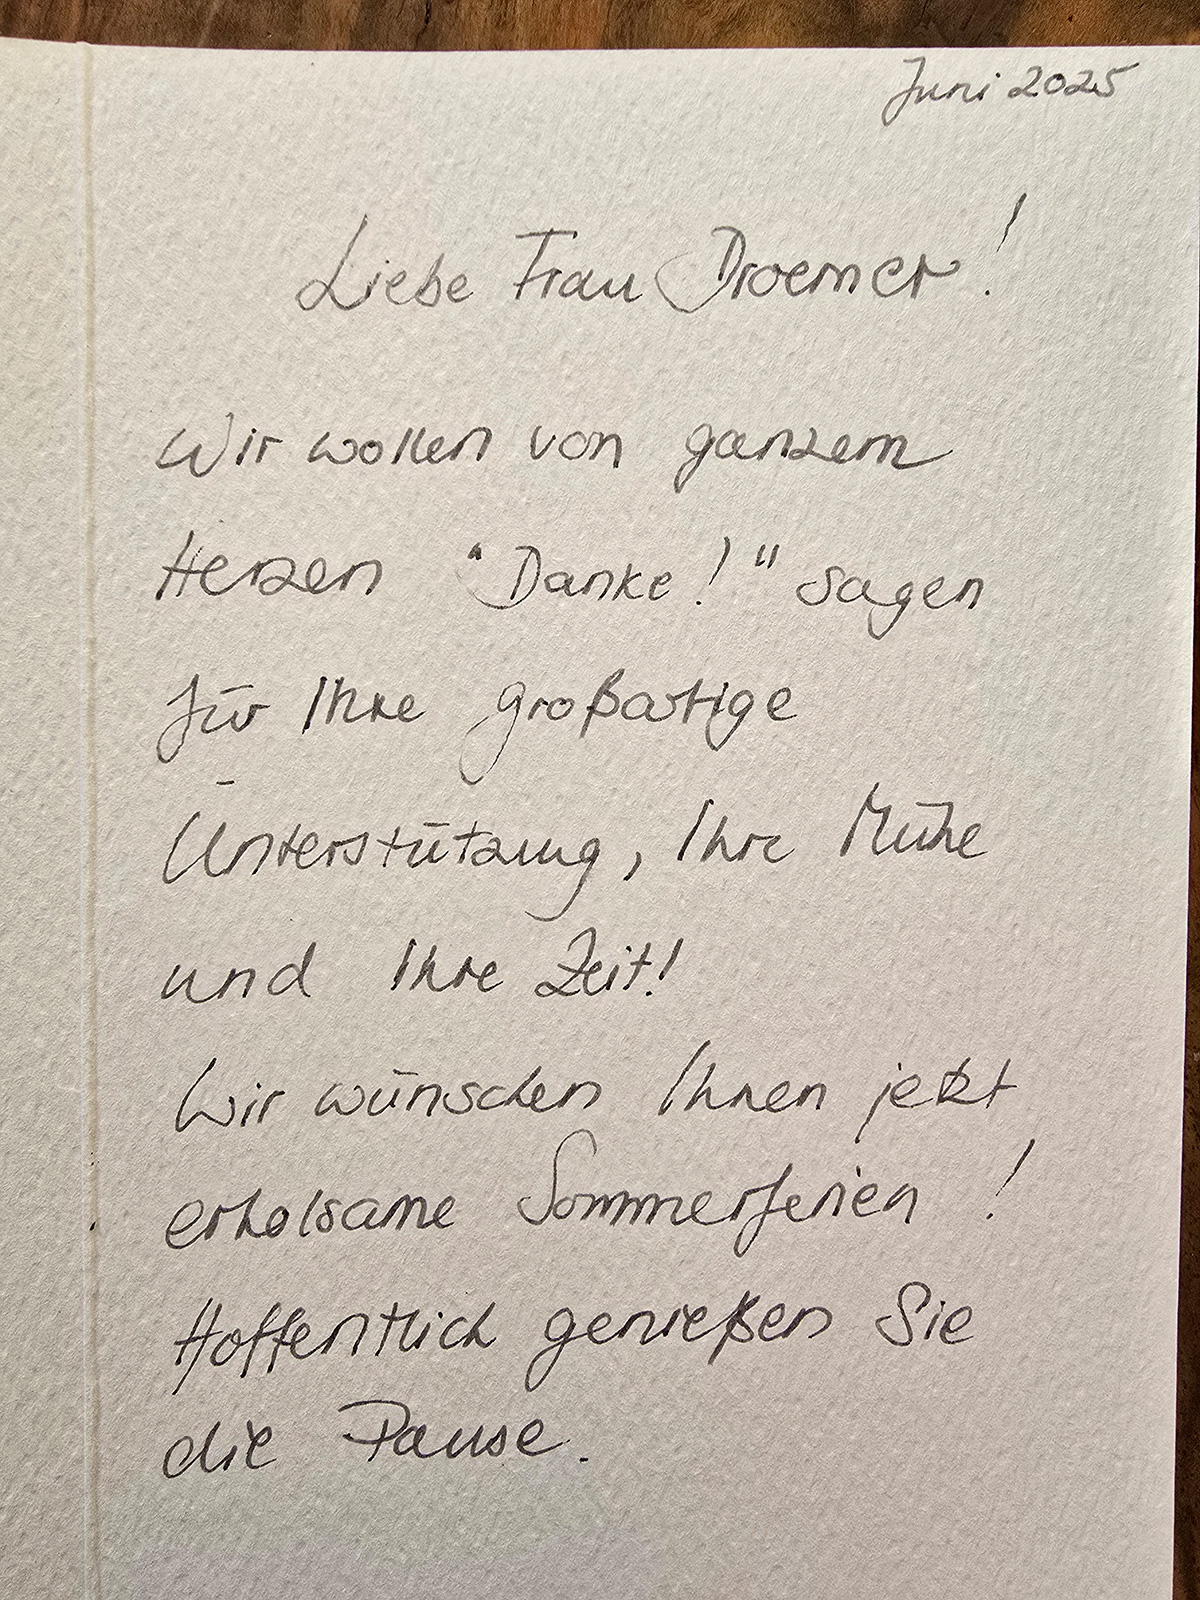 Juni 2025
Liebe Frau Droemer!
Wir wollen von ganzem
Herzen "Danke!" sagen
für Ihre großartige
Unterstützung, Ihre Mühe
und Ihre Zeit!
Wir wünschen Ihnen jetzt
erholsame Sommerferien!
Hoffentlich genießen Sie
die Pause.